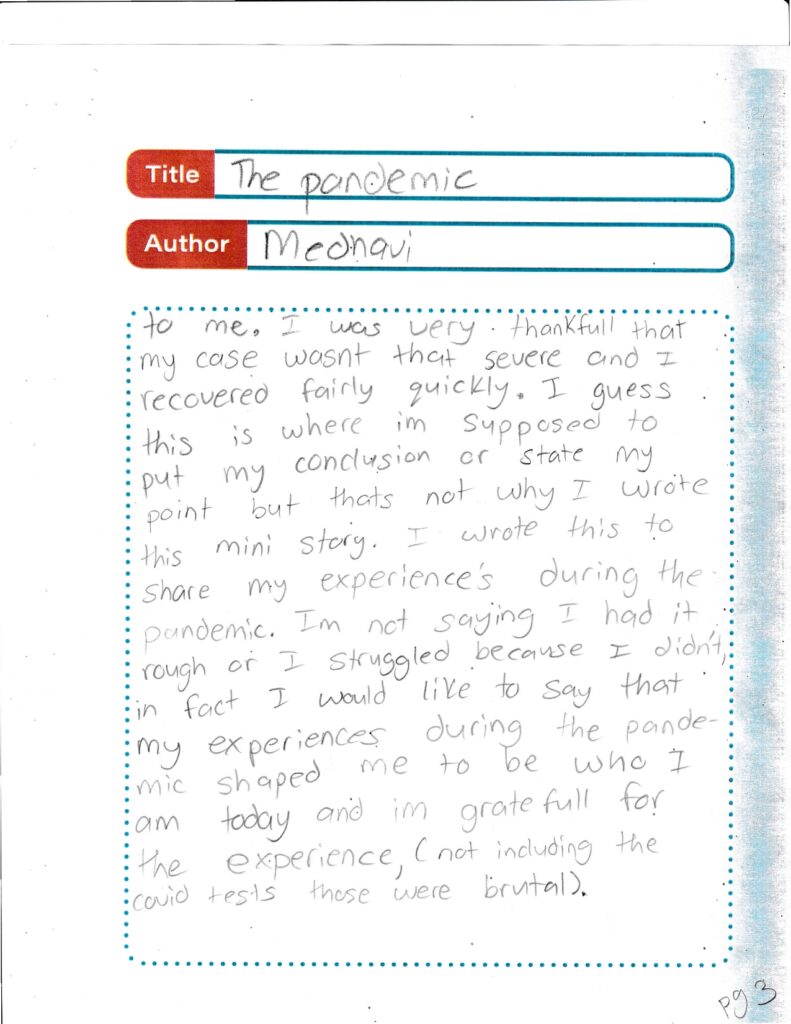 Title The pandemic
Author Mednavi
to me. I was very thankfull that
my case wasnt that severe and I
recovered fairly quickly. I guess
this is where im supposed to
put my conclusion or state my
point but thats not why I wrote
this mini story. I wrote this to
share my experience's during the
pandemic. Im not saying I had it
rough or I struggled because I didn't,
in fact I would like to say that
my experiences during the pande-
mic shaped me to be who I
am today and im gratefull for
the experience, (not including the
covid tests those were brutal).
pg 3